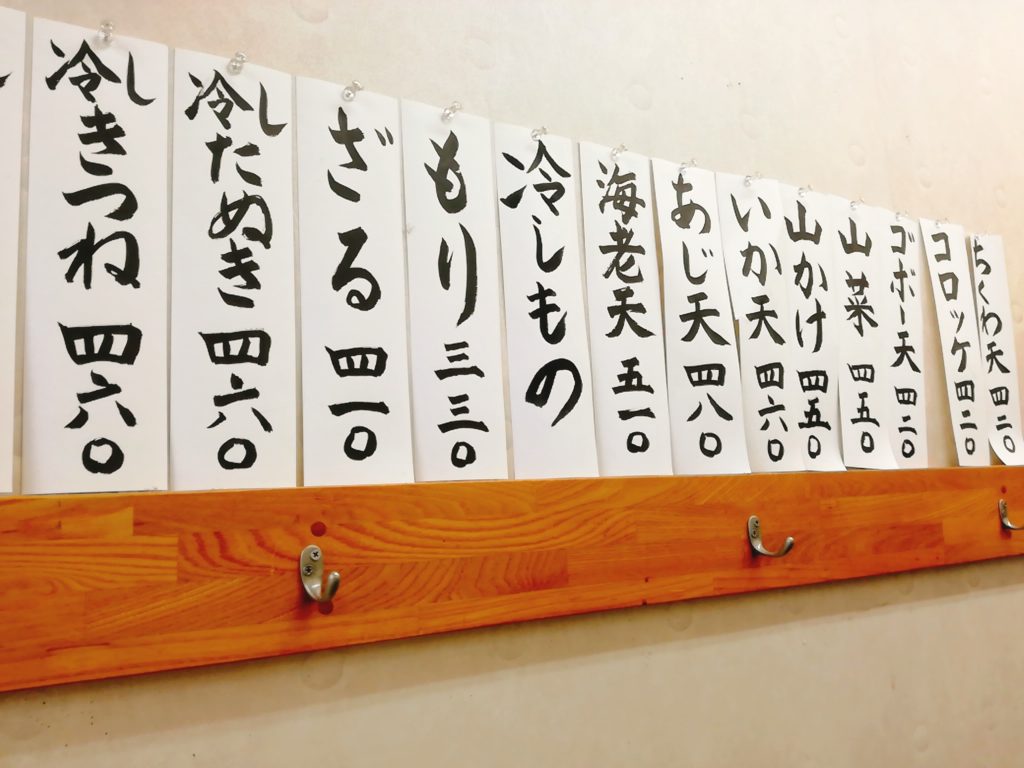 ちくわ天 四二〇
コロッケ 四二〇
ゴボー天 四二〇
山菜 四五〇
山かけ 四五〇
いか天 四六〇
あじ天 四八〇
海老天 五一〇
冷しもの
もり 三三〇
ざる 四一〇
冷したぬき 四六〇
冷しきつね 四六〇